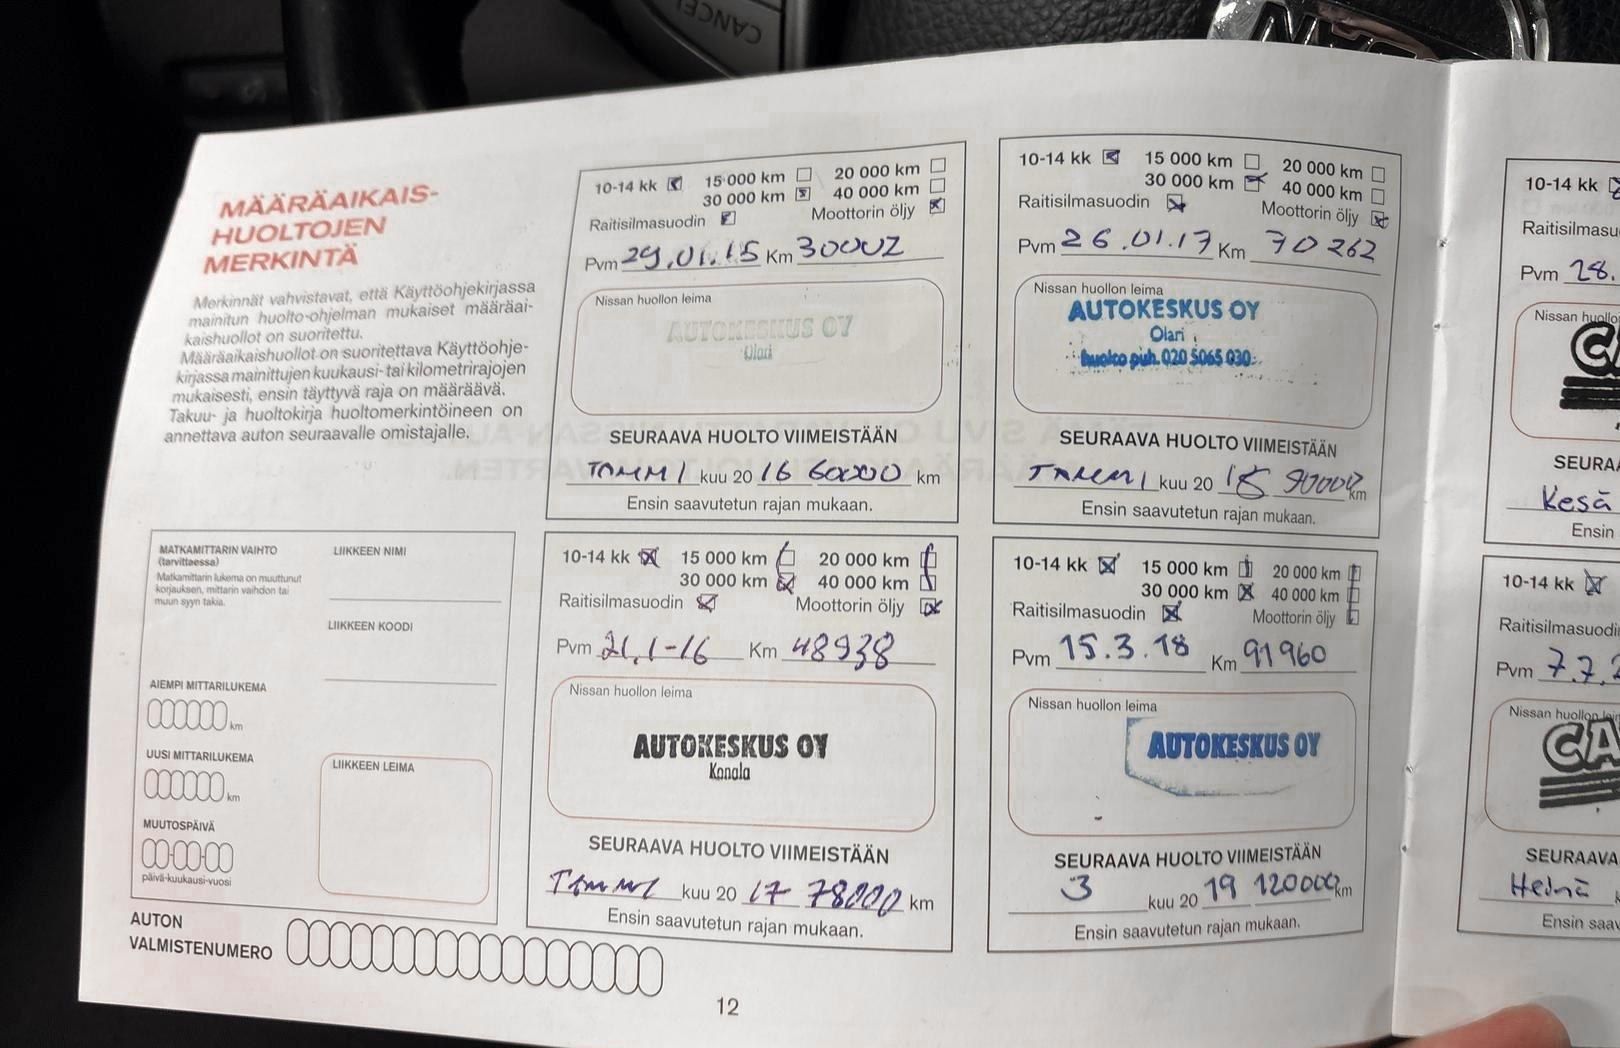 CANCEL
MÄÄRÄAIKAIS-
HUOLTOJEN
MERKINTÄ
Merkinnät vahvistavat, että Käyttöohjekirjassa
mainitun huolto-ohjelman mukaiset määräai-
kaishuollot on suoritettu.
Määräaikaishuollot on suoritettava Käyttöohje-
kirjassa mainittujen kuukausi- tai kilometrirajojen
mukaisesti, ensin täyttyvä raja on määräävä.
Takuu- ja huoltokirja huoltomerkintöineen on
annettava auton seuraavalle omistajalle.
MATKAMITTARIN VAIHTO
(tarvittaessa)
Matkamittarin lukema on muuttunut
korjauksen, mittarin vaihdon tai
muun syyn takia.
LIIKKEEN NIMI
LIIKKEEN KOODI
AIEMPI MITTARILUKEMA
km
UUSI MITTARILUKEMA
km
MUUTOSPÄIVÄ
päivä-kuukausi-vuosi
LIIKKEEN LEIMA
AUTON
VALMISTENUMERO
10-14 kk 15 000 km 20 000 km
30 000 km 40 000 km
Raitisilmasuodin Moottorin öljy
Pvm 29.01.15 Km 30002
Nissan huollon leima
AUTOKESKUS OY
Olari
SEURAAVA HUOLTO VIIMEISTÄÄN
TAMMI kuu 20 16 60000 km
Ensin saavutetun rajan mukaan.
10-14 kk 15 000 km 20 000 km
30 000 km 40 000 km
Raitisilmasuodin Moottorin öljy
Pvm 21.1-16 Km 48938
Nissan huollon leima
AUTOKESKUS OY
Konala
SEURAAVA HUOLTO VIIMEISTÄÄN
TAMMI kuu 20 17 78000 km
Ensin saavutetun rajan mukaan.
10-14 kk 15 000 km 20 000 km
30 000 km 40 000 km
Raitisilmasuodin Moottorin öljy
Pvm 26.01.17 Km 70262
Nissan huollon leima
AUTOKESKUS OY
Olari
huolto puh. 020 5065 030
SEURAAVA HUOLTO VIIMEISTÄÄN
TAMMI kuu 20 18 90000 km
Ensin saavutetun rajan mukaan.
10-14 kk 15 000 km 20 000 km
30 000 km 40 000 km
Raitisilmasuodin Moottorin öljy
Pvm 15.3.18 Km 91960
Nissan huollon leima
AUTOKESKUS OY
SEURAAVA HUOLTO VIIMEISTÄÄN
3 kuu 20 19 120000 km
Ensin saavutetun rajan mukaan.
12
10-14 kk
Raitisilmasu
Pvm 28.
Nissan huollo
CA
SEURA
Kesä
Ensin
10-14 kk
Raitisilmasuodi
Pvm 7.7.2
Nissan huollon lei
CA
SEURAAVA
Heinä
Ensin saav